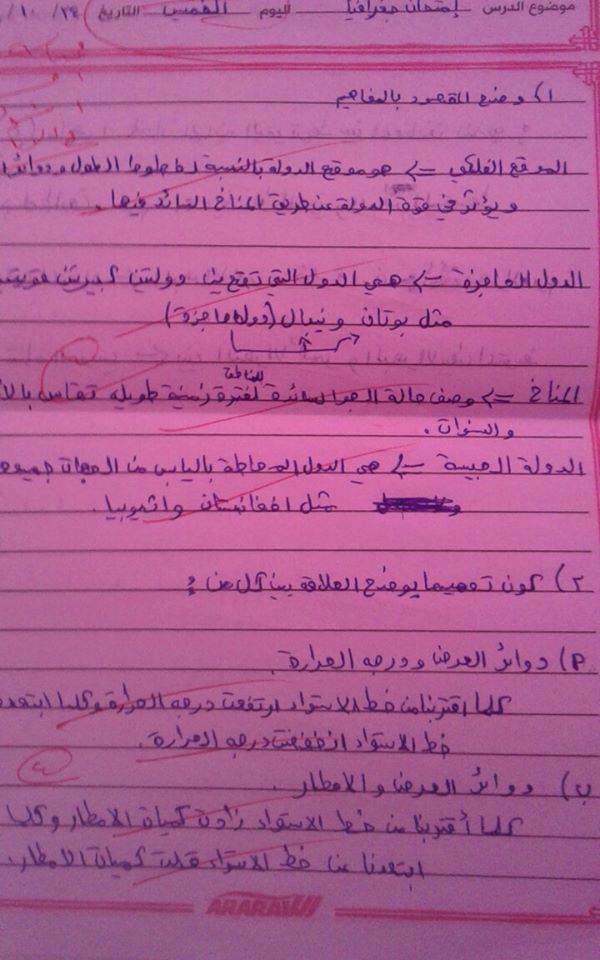 موضوع الدرس إمتحان جغرافيا لليوم الخميس التاريخ ٢٤/ ١٠/
١) وضح المقصود بالمفاهيم
الموقع الفلكي => هو موقع الدولة بالنسبة لخطوط الطول ودوائر
ويؤثر في قوة الدولة عن طريق المناخ السائد فيها.
الدول الحاجزة => هي الدول التي تقع بين دولتين كبيرتين
مثل بوتان ونيبال (دولة حاجزة)
المناخ => وصف حالة الجو السائدة للمنطقة لفترة زمنية طويله تقاس بال
والسنوات.
الدولة الحبيسة => هي الدول المحاطة باليابس من الجهات جميعه
مثل افغانستان واثيوبيا.
٢) كون تعميما يوضح العلاقة بين كل من :
أ) دوائر العرض ودرجه الحرارة.
كلما اقتربنا من خط الاستواء ارتفعت درجه الحرارة وكلما ابتعد
خط الاستواء انخفضت درجه الحرارة.
ب) دوائر العرض والامطار.
كلما أقتربنا من خط الاستواء زادت كميات الامطار وكلما
ابتعدنا عن خط الاستواء قلت كميات الامطار.
ARARAT